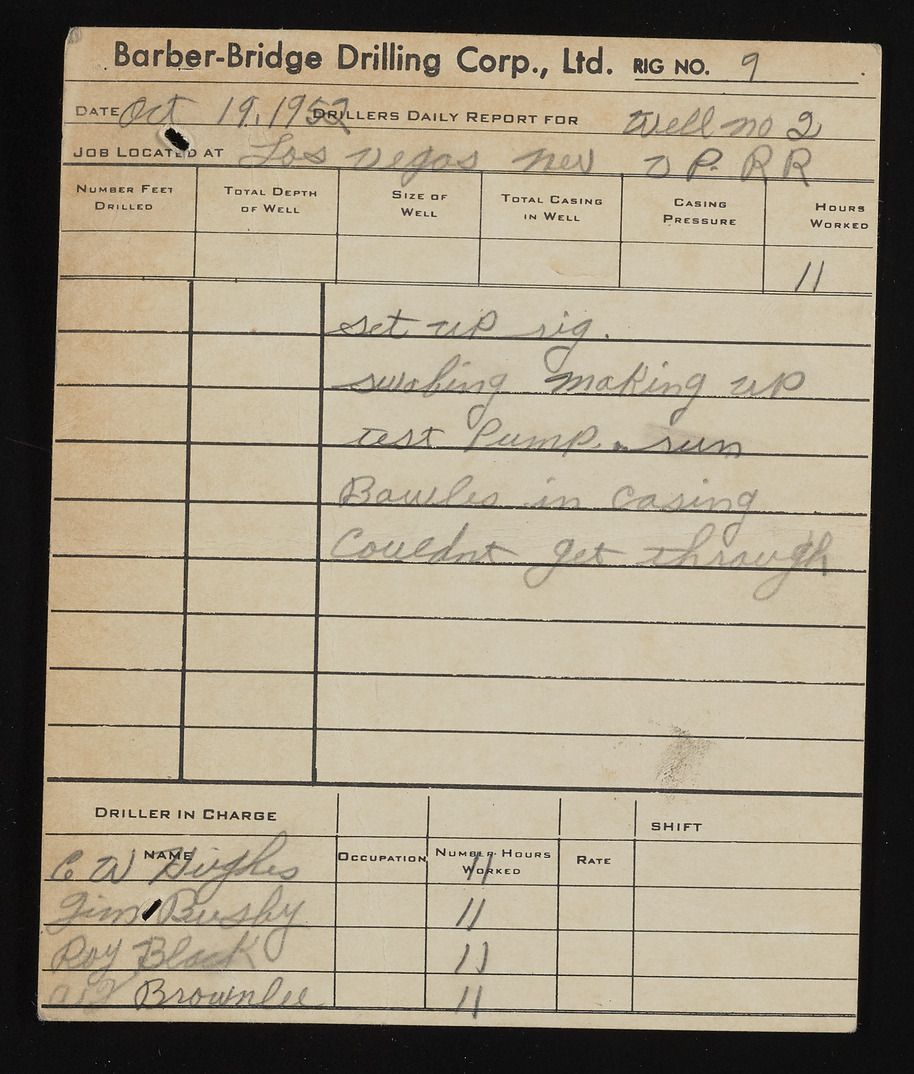 Barber-Bridge Drilling Corp., Ltd. RIG NO. 9
DATE Oct 19, 1952 DRILLERS DAILY REPORT FOR Well no 2
JOB LOCATED AT Las Vegas Nev U P. R R
NUMBER FEET DRILLED TOTAL DEPTH OF WELL SIZE OF WELL TOTAL CASING IN WELL CASING PRESSURE HOURS WORKED
11
set up rig.
swabing making up
test Pump. run
Bowles in casing
Couldnt get through
DRILLER IN CHARGE SHIFT
NAME OCCUPATION NUMBER HOURS WORKED RATE
C W Hughes 11
Jim Busby 11
Roy Black 11
Brownlee 11